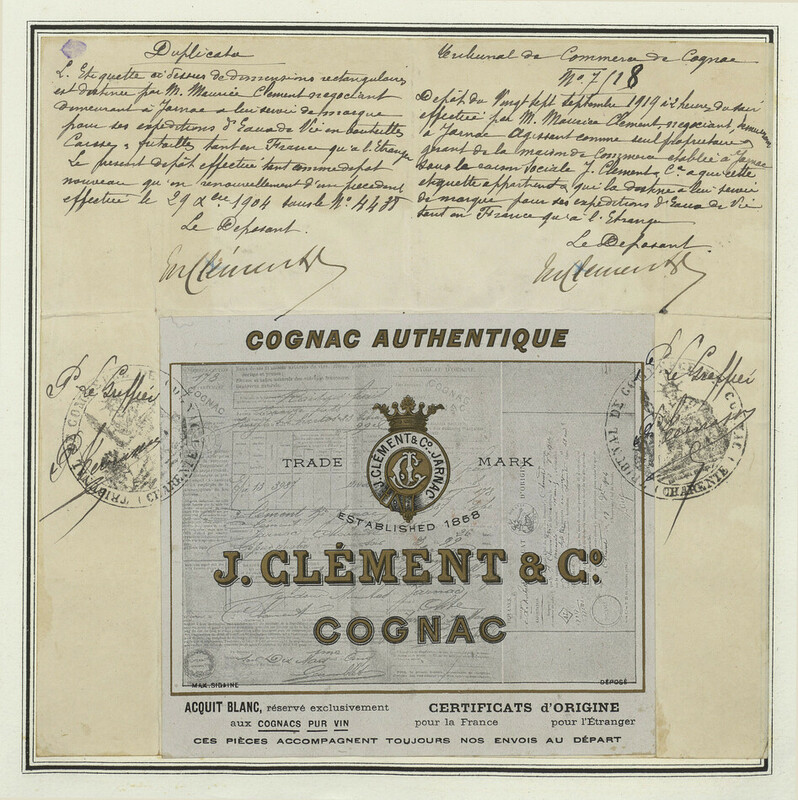 Duplicata
L'Etiquette ci dessus de dimensions rectangulaires
est destinée par M. Maurice Clément négociant
demeurant à Jarnac à lui servir de marque
pour ses expéditions d'Eaux de Vie en bouteilles
Caisses & futailles tant en France qu'à l'Etranger
Le present dépôt effectué tant comme depot
nouveau qu'en renouvellement d'un précédent
effectué le 29 Xbre 1904 sous le No 4435
Le Deposant.
M Clément
Tribunal de Commerce de Cognac
No. 7/18
Depôt du Vingt sept Septembre 1919 à 2 heures du soir
effectué par M. Maurice Clément, négociant, demeurant
à Jarnac Agissant comme seul propriétaire
gérant de la maison de Commerce établie à Jarnac
sous la raison Sociale J. Clément & Co. a qui cette
etiquette appartient & qui la destine à leur servir
de marque pour ses expéditions d'Eaux de Vie
tant en France qu'à l'Etrange
Le Deposant
M Clément
P. Le Greffier
TRIBUNAL DE COMMERCE COGNAC (CHARENTE)
P. Le Greffier
TRIBUNAL DE COMMERCE COGNAC (CHARENTE)
COGNAC AUTHENTIQUE
J. CLEMENT & Co. JARNAC
JC
TRADE MARK
ESTABLISHED 1858
J. CLÉMENT & Co.
COGNAC
MAX. SIDAINE DÉPOSÉ
ACQUIT BLANC, réservé exclusivement
aux COGNACS PUR VIN
CERTIFICATS d'ORIGINE
pour la France pour l'Étranger
CES PIÈCES ACCOMPAGNENT TOUJOURS NOS ENVOIS AU DÉPART